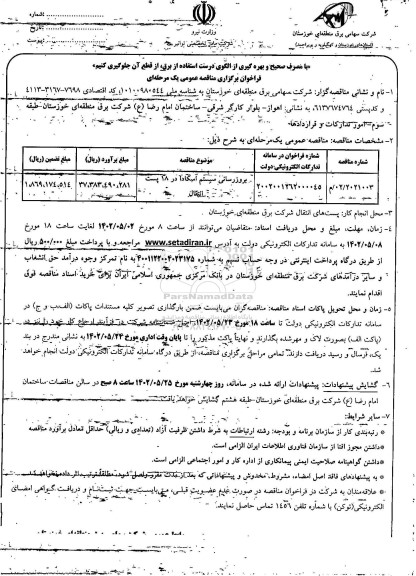 شرکت سهامی برق منطقه‌ای خوزستان
وزارت نیرو
شماره:
تاریخ:
پیوست:
«با مصرف صحیح و بهره گیری از الگوی درست استفاده از برق، از قطع آن جلوگیری کنیم»
فراخوان برگزاری مناقصه عمومی یک مرحله‌ای
۱- نام و نشانی مناقصه‌گزار: شرکت سهامی برق منطقه‌ای خوزستان به شناسه ملی ۱۰۱۰۰۹۸۰۵۴۴، کد اقتصادی ۷۶۹۸-۳۱۶۷-۴۱۱۳
و کدپستی ۶۱۳۶۷۴۷۶۴، به نشانی: اهواز- بلوار کارگر شرقی- ساختمان امام رضا (ع) شرکت برق منطقه‌ای خوزستان- طبقه
سوم- امور تدارکات و قراردادها.
۲- مشخصات مناقصه: مناقصه عمومی یک‌مرحله‌ای به شرح ذیل:
شماره مناقصه شماره فراخوان در سامانه تدارکات الکترونیکی دولت موضوع مناقصه مبلغ برآورد (ریال) مبلغ تضمین (ریال)
۰۲/۲۰۲۱۰۰۳/م ۲۰۰۲۰۰۱۲۶۲۰۰۰۰۴۵ بروزرسانی سیستم اسکادا در ۱۸ پست انتقال ۳۷,۳۸۳,۴۹۰,۲۸۱ ۱,۸۶۹,۱۷۴,۵۱۴
۳- محل انجام کار: پست‌های انتقال شرکت برق منطقه‌ای خوزستان
۴- زمان، مهلت، مبلغ و محل دریافت اسناد: متقاضیان می‌توانند از ساعت ۸ مورخ ۱۴۰۲/۰۵/۰۲ لغایت ساعت ۱۸ مورخ
۱۴۰۲/۰۵/۰۸ به سامانه تدارکات الکترونیکی دولت به آدرس www.setadiran.ir مراجعه و با پرداخت مبلغ ۵۰۰/۰۰۰ ریال
از طریق درگاه پرداخت اینترنتی در وجه حساب نسیم به شماره ۴۰۰۱۱۲۲۰۰۴۰۲۳۱۷۵ به نام تمرکز وجوه درآمد حق انشعاب
و سایر درآمدهای شرکت برق منطقه‌ای خوزستان در بانک مرکزی جمهوری اسلامی ایران برای خرید اسناد مناقصه فوق
اقدام نمایند.
۵- زمان و محل تحویل پاکات اسناد مناقصه: مناقصه‌گران می‌بایست ضمن بارگذاری تصویر کلیه مستندات پاکات (الف،ب و ج) در
سامانه تدارکات الکترونیکی دولت تا ساعت ۱۸ مورخ ۱۴۰۲/۰۵/۲۳،
(پاکت الف) بصورت لاک و مهرشده بگذارند و نهایتاً پاکت مذکور را تا پایان وقت اداری مورخ ۱۴۰۲/۰۵/۲۴ به نشانی مندرج در بند
یک، ارسال و رسید دریافت دارند. تمامی مراحل برگزاری مناقصه، از طریق درگاه سامانه تدارکات الکترونیکی دولت انجام خواهد
شد.
۶- گشایش پیشنهادات: پیشنهادات ارائه شده در سامانه، روز چهارشنبه مورخ ۱۴۰۲/۰۵/۲۵ ساعت ۸ صبح در سالن مناقصات- ساختمان
امام رضا (ع) شرکت برق منطقه‌ای خوزستان- طبقه هشتم گشایش خواهد یافت.
۷- سایر شرایط:
* رتبه‌بندی کار از سازمان برنامه و بودجه: رشته ارتباطات به شرط داشتن ظرفیت آزاد (تعدادی و ریالی) حداقل تعادل برآورد مناقصه
* داشتن مجوز افتا از سازمان فناوری اطلاعات ایران الزامی است.
* داشتن گواهینامه صلاحیت ایمنی پیمانکاری از اداره کار و امور اجتماعی الزامی است.
* به پیشنهادهای فاقد امضاء، مشروط، مخدوش و پیشنهاداتی که بعد از
* علاقه‌مندان به شرکت در فراخوان مناقصه در صورت عدم عضویت قبلی، می‌بایست جهت ثبت‌نام و دریافت گواهی امضای
الکترونیکی(توکن) با شماره تلفن ۱۴۵۶ تماس حاصل نمایند.